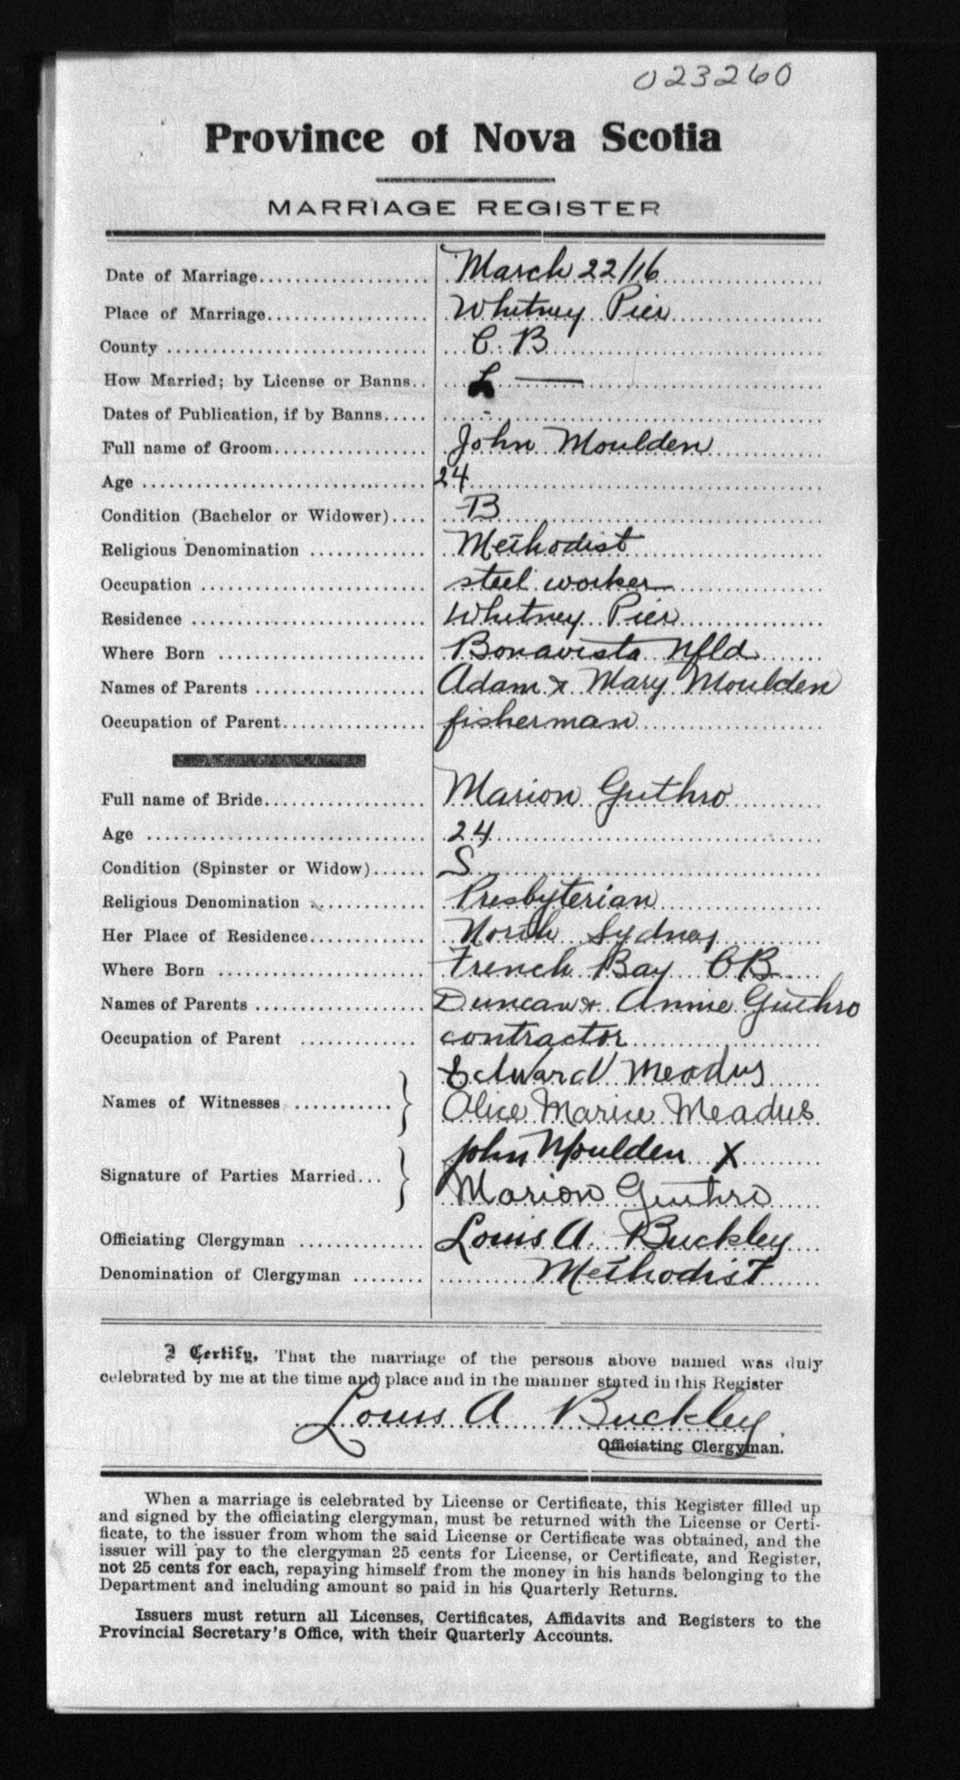 023260
Province of Nova Scotia
MARRIAGE REGISTER
Date of Marriage.................... March 22/16
Place of Marriage................... Whitney Pier
County .............................. C. B
How Married; by License or Banns.. L —
Dates of Publication, if by Banns..... -
Full name of Groom.................. John Moulden
Age ................................. 24
Condition (Bachelor or Widower).... B
Religious Denomination ............. Methodist
Occupation .......................... steel worker
Residence ........................... Whitney Pier
Where Born ......................... Bonavista Nfld
Names of Parents ................... Adam & Mary Moulden
Occupation of Parent................. fisherman
Full name of Bride................... Marion Guthro
Age ................................. 24
Condition (Spinster or Widow)...... S
Religious Denomination ............. Presbyterian
Her Place of Residence.............. North Sydney
Where Born ......................... French Bay CB
Names of Parents ................... Duncan & Annie Guthro
Occupation of Parent .............. contractor
Edward Meadus
Names of Witnesses ........... } Alice Marie Meadus
John Moulden X
Signature of Parties Married... } Marion Guthro
Officiating Clergyman .............. Louis A. Buckley
Denomination of Clergyman ........ Methodist
I Certify, That the marriage of the persons above named was duly
celebrated by me at the time and place and in the manner stated in this Register
Louis A Buckley
Officiating Clergyman.
When a marriage is celebrated by License or Certificate, this Register filled up
and signed by the officiating clergyman, must be returned with the License or Certi-
ficate, to the issuer from whom the said License or Certificate was obtained, and the
issuer will pay to the clergyman 25 cents for License, or Certificate, and Register,
not 25 cents for each, repaying himself from the money in his hands belonging to the
Department and including amount so paid in his Quarterly Returns.
Issuers must return all Licenses, Certificates, Affidavits and Registers to the
Provincial Secretary's Office, with their Quarterly Accounts.